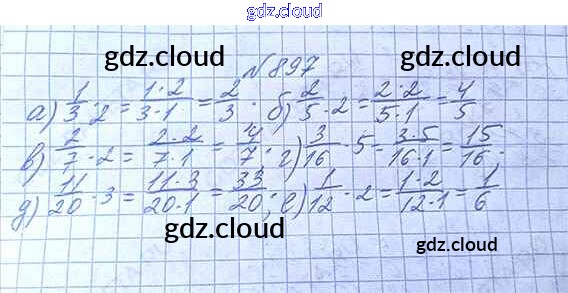 gdz.cloud
gdz.cloud № 897 gdz.cloud
а) 1/3 · 2 = 1·2/3·1 = 2/3. б) 2/5 · 2 = 2·2/5·1 = 4/5
в) 2/7 · 2 = 2·2/7·1 = 4/7; г) 3/16 · 5 = 3·5/16·1 = 15/16;
д) 11/20 · 3 = 11·3/20·1 = 33/20; е) 1/12 · 2 = 1·2/12·1 = 1/6
gdz.cloud
gdz.cloud
gdz.cloud